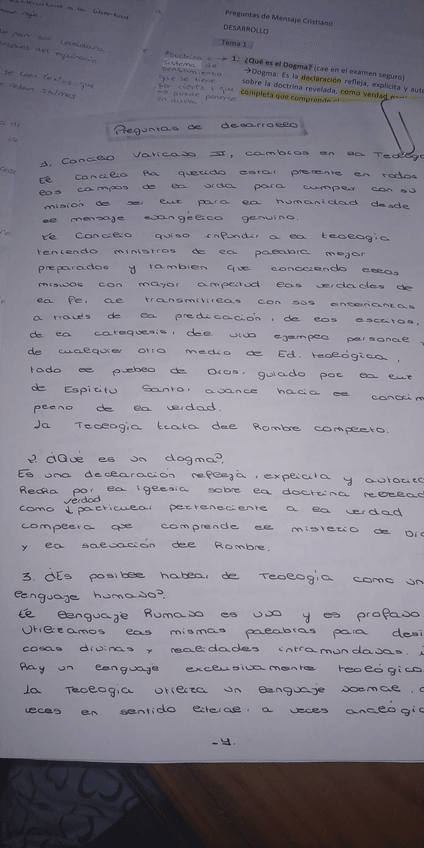 Preguntas de Mensaje Cristiano
DESARROLLO
Tema 1
1. ¿Qué es el Dogma? (cae en el examen seguro)
→Dogma: Es la declaración refleja, explícita y
sobre la doctrina revelada, como verdad
completa que comprende
sistema de
pensamiento
que se tiene
por cierto y que
no puede ponerse
en duda
Preguntas de desarrollo
1. Concilio Vaticano II, cambios en la
El Concilio ha querido estar presente en todos
los campos de la vida para cumplir con su
misión de ser luz para la humanidad desde
el mensaje evangélico genuino.
El Concilio quiso infundir a la teología
teniendo ministros de la palabra mejor
preparados y también que conociendo ellos
mismos con mayor amplitud las verdades de
la fe, al transmitirlas con sus enseñanzas
a través de la predicación, de los escritos,
de la catequesis, del vivo ejemplo personal y
de cualquier otro medio de Ed. teológica,
todo el pueblo de Dios, guiado por la luz
de Espíritu Santo, avance hacia el
pleno de la verdad.
La Teología trata del hombre completo.
2. ¿Qué es un dogma?
Es una declaración refleja, explícita y
hecha por la iglesia sobre la doctrina
verdad
como ↓ particular perteneciente a la verdad
completa que comprende el misterio de
y la salvación del hombre.
3. ¿Es posible hablar de Teología como un
lenguaje humano?
El lenguaje humano es uno y es profano
Utilizamos las mismas palabras para
cosas divinas y realidades intramundanas.
hay un lenguaje exclusivamente
La Teología utiliza un lenguaje normal,
veces en sentido literal, a veces
-4-